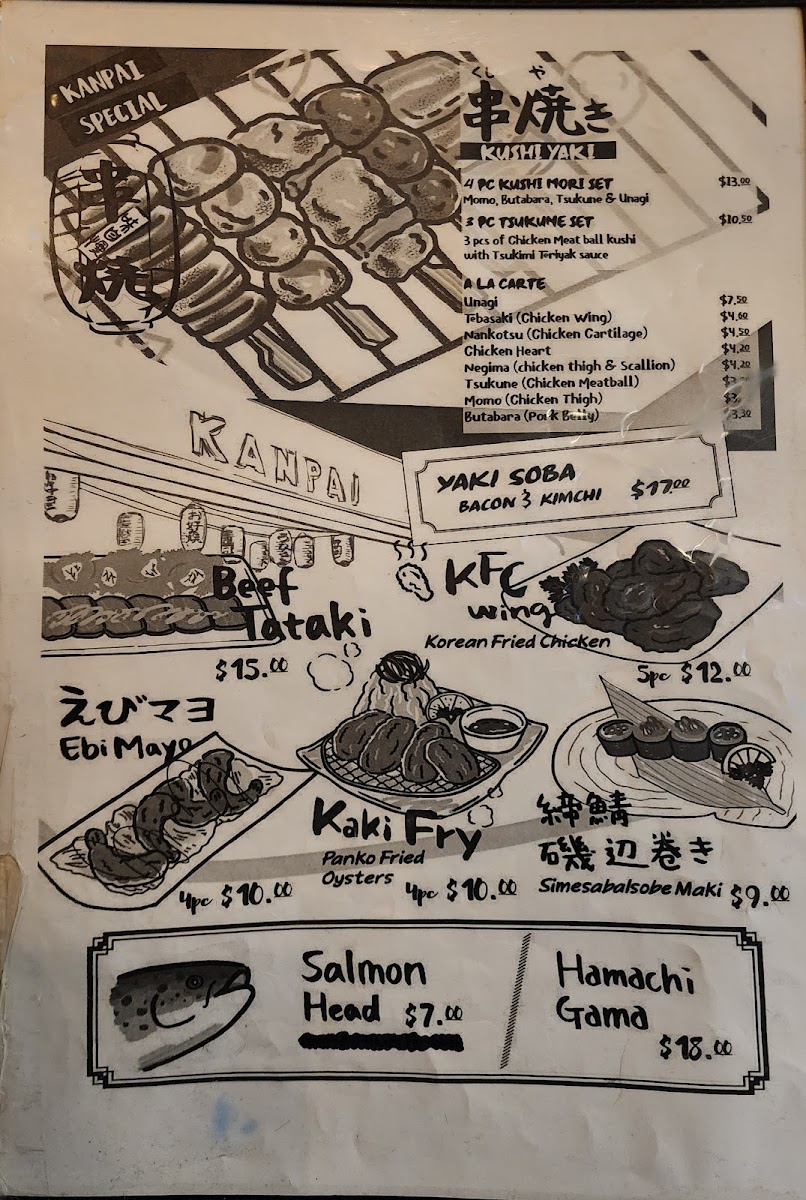 KANPAI
SPECIAL
串
焼
くし や
串焼き
KUSHIYAKI
4 PC KUSHI MORI SET $13.00
Momo, Butabara, Tsukune & Unagi
3 PC TSUKUNE SET $10.50
3 pcs of Chicken Meat ball kushi
with Tsukimi Teriyak sauce
A LA CARTE
Unagi $7.50
Tebasaki (Chicken Wing) $4.60
Nankotsu (Chicken Cartilage) $4.50
Chicken Heart $4.20
Negima (chicken thigh & Scallion) $4.20
Tsukune (Chicken Meatball)
Momo (Chicken Thigh)
Butabara (Pork Belly) $3.30
KANPAI
YAKI SOBA
BACON & KIMCHI $17.00
お好焼
Beef
Tataki
$15.00
KFC
wing
Korean Fried Chicken
5pc $12.00
えびマヨ
Ebi Mayo
4pc $10.00
Kaki Fry
Panko Fried
Oysters
4pc $10.00
締鯖
磯辺巻き
Simesabalsobe Maki $9.00
Salmon
Head $7.00
Hamachi
Gama
$18.00